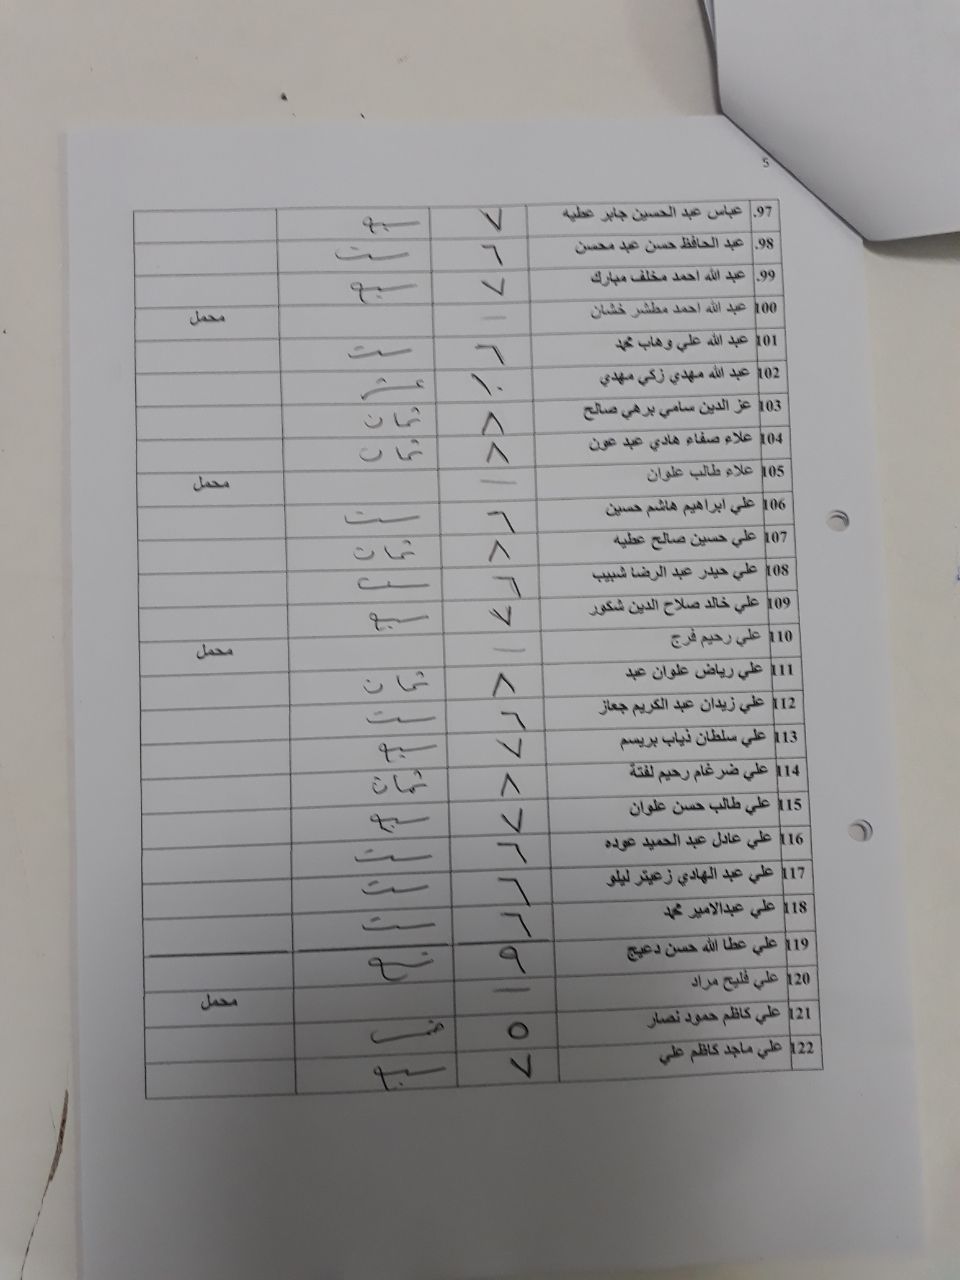 5
97. عباس عبد الحسين جابر عطيه ٧ سبع
98. عبد الحافظ حسن عبد محسن ٦ ست
99. عبد الله احمد مخلف مبارك ٧ سبع
100 عبد الله احمد مطشر خشان — محمل
101 عبد الله علي وهاب محمد ٦ ست
102 عبد الله مهدي زكي مهدي ١٠ عشر
103 عز الدين سامي برهي صالح ٨ ثمان
104 علاء صفاء هادي عبد عون ٨ ثمان
105 علاء طالب علوان — محمل
106 علي ابراهيم هاشم حسين ٦ ست
107 علي حسين صالح عطيه ٨ ثمان
108 علي حيدر عبد الرضا شبيب ٦ ست
109 علي خالد صلاح الدين شكور ٧ سبع
110 علي رحيم فرج — محمل
111 علي رياض علوان عبد ٨ ثمان
112 علي زيدان عبد الكريم جعاز ٦ ست
113 علي سلطان ذياب بريسم ٧ سبع
114 علي ضرغام رحيم لفتة ٨ ثمان
115 علي طالب حسن علوان ٧ سبع
116 علي عادل عبد الحميد عوده ٦ ست
117 علي عبد الهادي زعيتر ليلو ٦ ست
118 علي عبدالامير محمد ٦ ست
119 علي عطا الله حسن دعيج ٩ تسع
120 علي فليح مراد — محمل
121 علي كاظم حمود نصار ٥ خمس
122 علي ماجد كاظم علي ٧ سبع